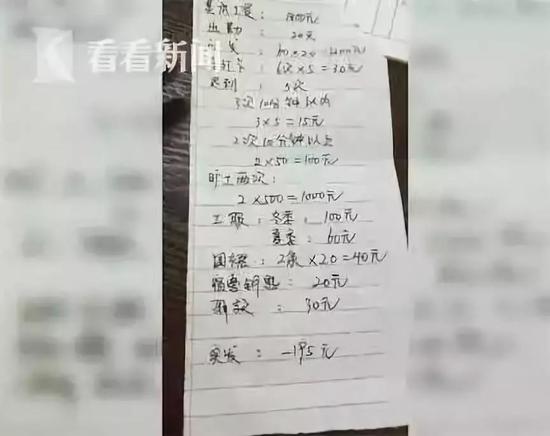 基本工资: 1800元
出勤: 20天
发: 60×20=1200元
看看新闻
打卡: 6次×5=30元
迟到: 5次
3次10分钟以内
3×5=15元
2次10分钟以上
2×50=100元
旷工两次:
2×500=1000元
工服: 冬季: 100元
夏季: 60元
围裙: 2条×20=40元
宿舍钥匙: 20元
: 30元
实发: -195元